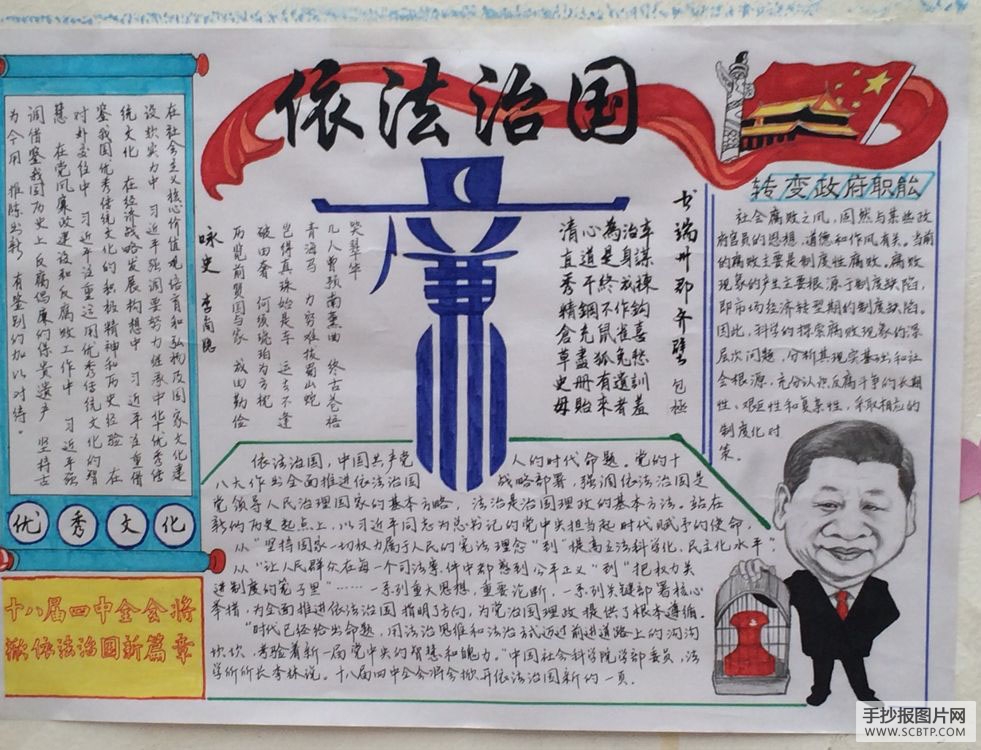 依法治国
在社会主义核心价值观培育和弘扬及国家文化建
设软实力中 习近平强调要努力继承中华优秀传
统文化 在经济战略发展构想中 习近平注重借
鉴我国优秀传统文化的积极精神和历史经验 在
对外交往中 习近平注重运用优秀传统文化的智
慧 在党风廉政建设和反腐败工作中 习近平强
调借鉴我国历史上反腐倡廉的保贵遗产 坚持古
为今用 推陈出新 有鉴别的加以对待。
优秀文化
十八届四中全会将
掀依法治国新篇章
咏史 李商隐
历览前贤国与家 成由勤俭
破由奢 何须琥珀方为枕
岂得真珠始是车 运去不逢
青海马 力穷难拔蜀山蛇
几人曾预南薰曲 终古苍梧
哭翠华
书端州郡齐壁 包拯
清心為治本
直道是身謀
秀干終成棟
精鋼不作鈎
倉充鼠雀喜
草盡狐兔愁
史册有遺訓
毋貽來者羞
转变政府职能
社会腐败之风，固然与某些政
府官员的思想、道德和作风有关。当前
的腐败主要是制度性腐败。腐败
现象的产生主要根源于制度缺陷，
即市场经济转型期的制度缺陷。
因此，科学的探索腐败现象的深
层次问题，分析其现实基础和社
会根源，充分认识反腐斗争的长期
性、艰巨性和复杂性，采取相应的
制度化对
策。
依法治国，中国共产党人的时代命题。党的十
八大作出全面推进依法治国战略部署，强调依法治国是
党领导人民治理国家的基本方略，法治是治国理政的基本方法。站在
新的历史起点上，以习近平同志为总书记的党中央担当起时代赋予的使命，
从“坚持国家一切权力属于人民的宪法理念”到“提高立法科学化、民主化水平”；
从“让人民群众在每一个司法案件中都感到公平正义”到“把权力关
进制度的笼子里”……一系列重大思想，重要论断，一系列关键部署核心
举措，为全面推进依法治国指明了方向，为党治国理政提供了根本遵循。
“时代已经给出命题，用法治思维和法治方式迈过前进道路上的沟沟
坎坎，考验着新一届党中央的智慧和魄力。”中国社会科学院学部委员，法
学所所长李林说。十八届四中全会将会掀开依法治国新的一页。
手抄报图片网
WWW.SCBTP.COM